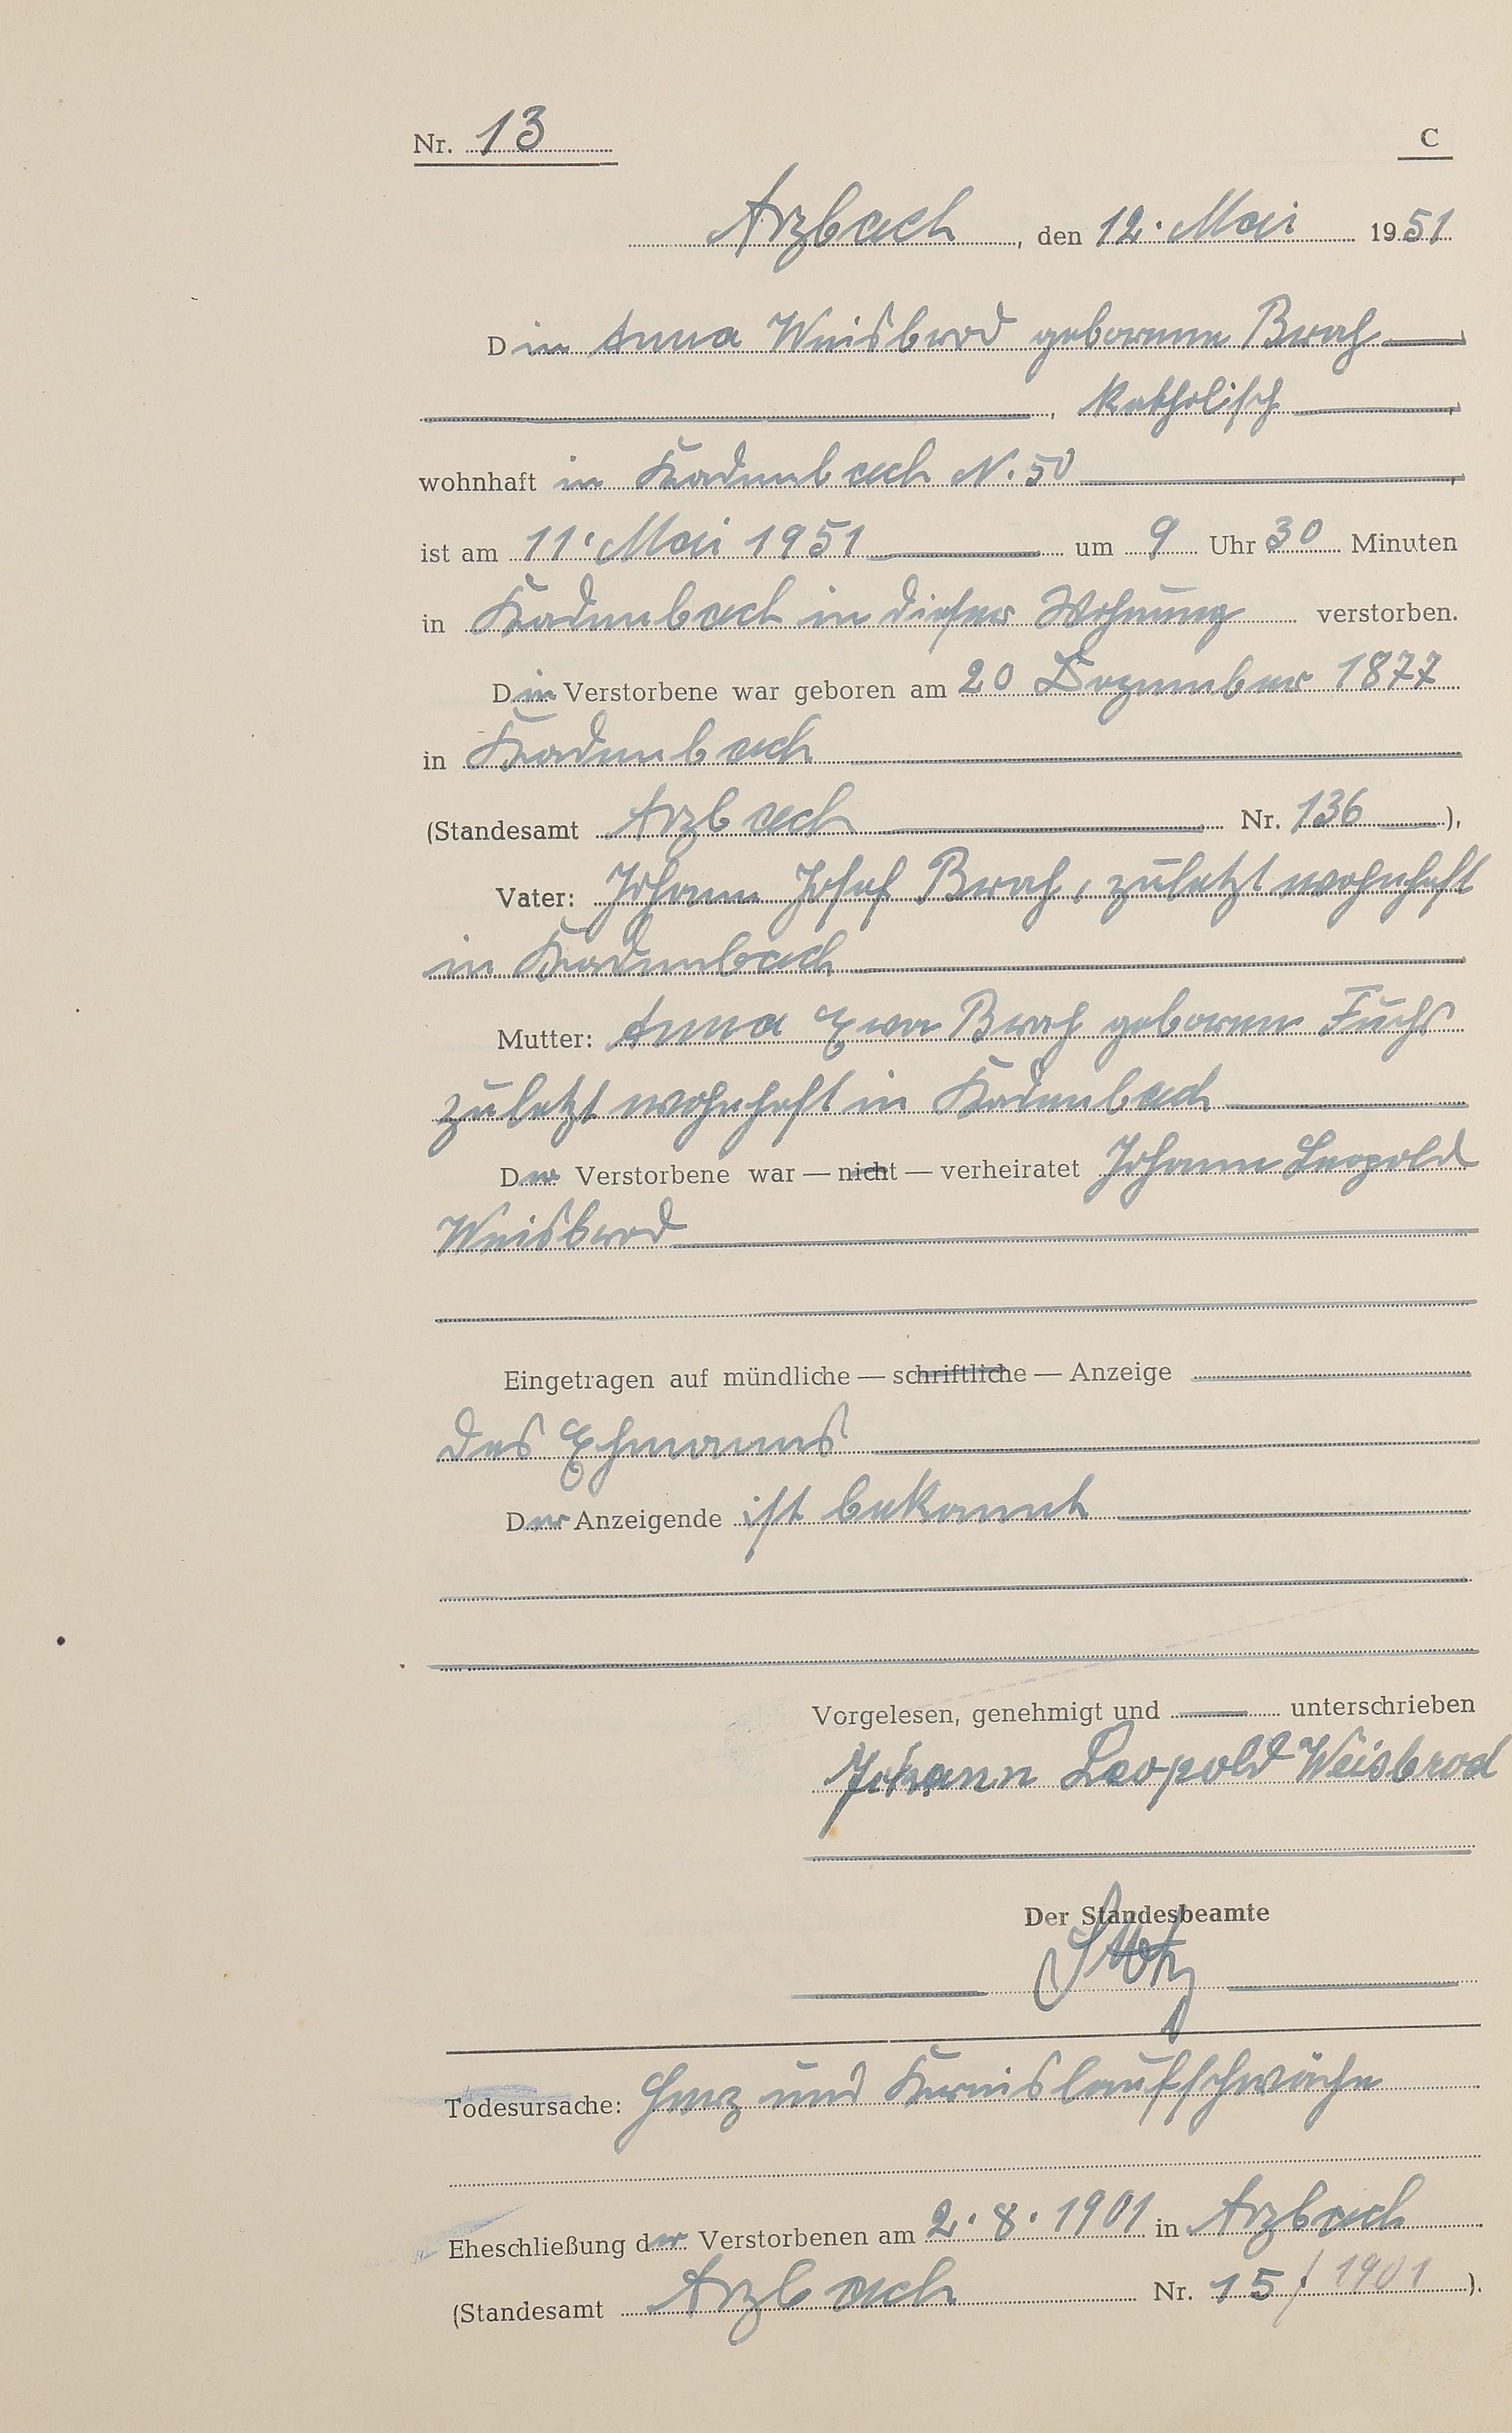 Nr. 13
C
Arzbach, den 12. Mai 1951
Die Anna Weisbrod geborene Brach
, katholisch
wohnhaft in Kadenbach N. 50
ist am 11. Mai 1951 um 9 Uhr 30 Minuten
in Kadenbach in dieser Wohnung verstorben.
Die Verstorbene war geboren am 20 Dezember 1877
in Kadenbach
(Standesamt Arzbach Nr. 136),
Vater: Johann Josef Brach, zuletzt wohnhaft
in Kadenbach
Mutter: Anna Eva Brach geborene Fuchs
zuletzt wohnhaft in Kadenbach
Der Verstorbene war — nicht — verheiratet Johann Leopold
Weisbrod
Eingetragen auf mündliche — schriftliche — Anzeige
des Ehmanns
Der Anzeigende ist bekannt
Vorgelesen, genehmigt und unterschrieben
Johann Leopold Weisbrod
Der Standesbeamte
Todesursache: Herz und Kreislaufschwäche
Eheschließung der Verstorbenen am 2. 8. 1901 in Arzbach
(Standesamt Arzbach Nr. 15 / 1901).